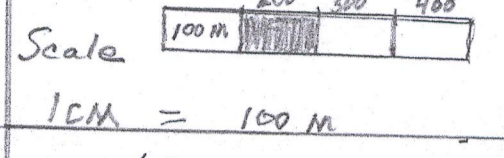 200 300 400
Scale 100 M
1CM = 100 M